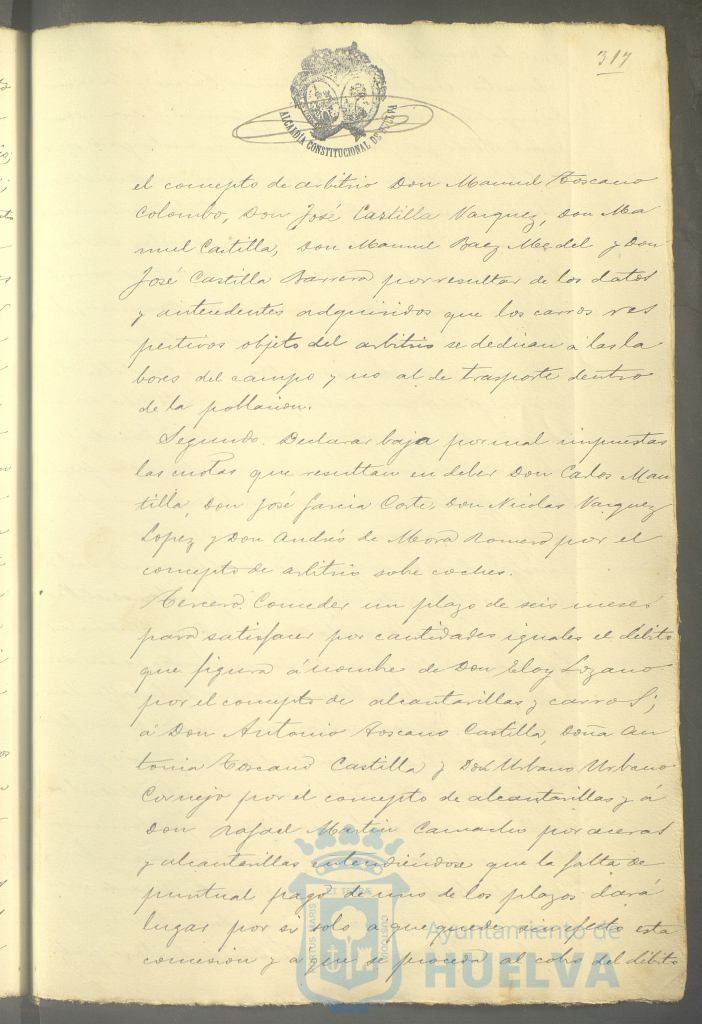 317
ALCALDÍA CONSTITUCIONAL DE HUELVA
el concepto de arbitrio Don Manuel Toscano
Colombo, Don José Castilla Vazquez, Don Ma
nuel Castilla, Don Manuel Baez Medel y Don
José Castilla Barrera por resultar de los datos
y antecedentes adquiridos que los carros res
pectivos objeto del arbitrio se dedican á las la
bores del campo y no al de trasporte dentro
de la poblacion.
Segundo. Declarar baja por mal impuestas
las cuotas que resultan en deber Don Carlos Man
tilla, Don José Garcia Corte, Don Nicolas Vazquez
Lopez y Don Andrés de Mora Romero por el
concepto de arbitrio sobre coches.
Tercero. Conceder un plazo de seis meses
para satisfacer por cantidades iguales el débito
que figura á nombre de Don Eloy Lozano
por el concepto de alcantarillas y carros;
á Don Antonio Toscano Castilla, Doña An
tonia Toscano Castilla y Don Urbano Urbano
Cornejo por el concepto de alcantarillas y á
Don Rafael Martin Camacho por aceras
y alcantarillas entendiéndose que la falta de
puntual pago de uno de los plazos dará
lugar por si solo a que quede sin efecto esta
concesion y a que se proceda al cobro del débito
PORTUS MARIS ET TERRAE CUSTODIA
Ayuntamiento de
HUELVA